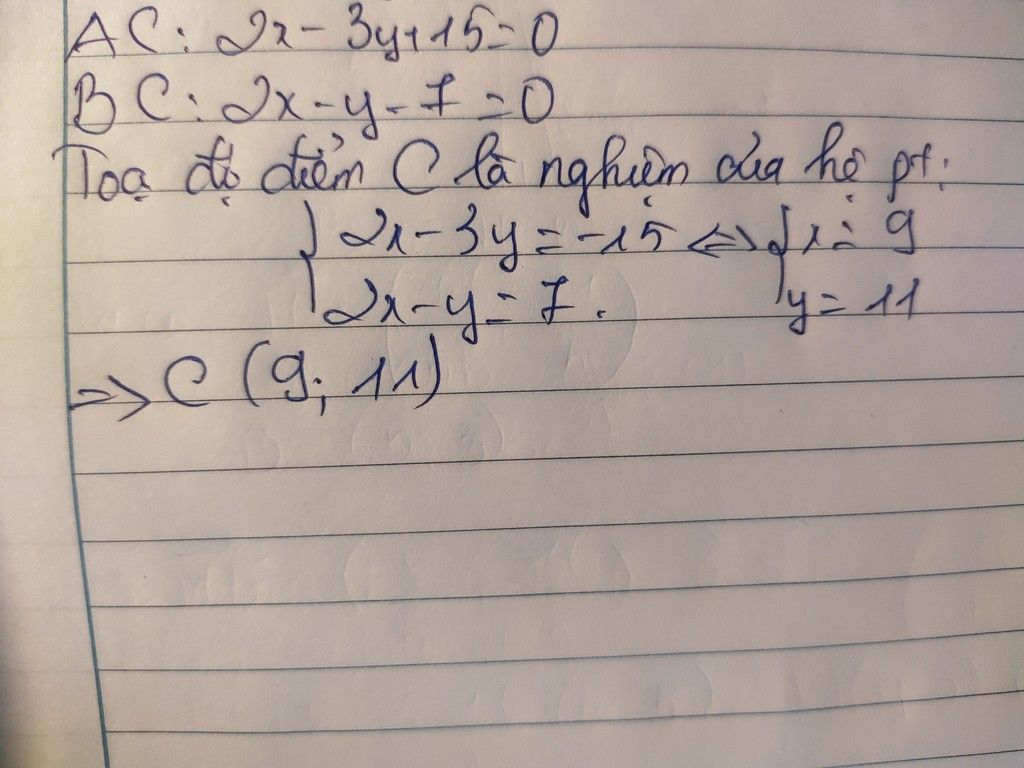 AC: 2x - 3y + 15 = 0
BC: 2x - y - 7 = 0
Toạ độ điểm C là nghiệm của hệ pt:
{ 2x - 3y = -15 <=> { x = 9
{ 2x - y = 7. { y = 11
=> C (9; 11)